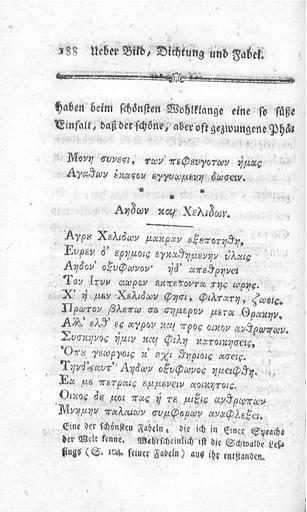 188 Ueber Bild, Dichtung und Fabel.
haben beim schönsten Wohlklange eine so süße
Einfalt, daß der schöne, aber oft gezwungene Phä⸗
Μονη συνεσι, των πεφευγοτων ἡμας
Αγαθων ἑκαςον εγγυωμενη δωσειν.
* * *
Αηδων και Χελιδων.
Αγρε Χελιδων μακραν εξεποτηθη,
Ευρεν δ' ερημοις εγκαθημενην ὑλαις
Αηδον' οξυφωνον· ἡδ' απεθρηνει
Τον Ιτυν αωρον εκπεσοντα της ωρης.
Χ' ἡ μεν Χελιδων φησι, φιλτατη, ζωοις.
Πρωτον βλεπω σε σημερον μετα Θρακην.
Αλλ' ελθ' ες αγρον και προς οικον ανθρωπων.
Συσκηνος ἡμιν και φιλη κατοικησεις.
Ὁπȣ γεωργοις κ' ȣχι θηριοις ασεις.
Τηνδ' αυτ' Αηδων οξυφωνος ημειφθη.
Εα με πετραις εμμενειν αοικητοις.
Οικος δε μοι πας ἡ τε μιξις ανθρωπων
Μνημην παλαιων συμφορων αναφλεξει.
Eine der schönsten Fabeln, die ich in Einer Sprache
der Welt kenne. Wahrscheinlich ist die Schwalbe Les⸗
sings (S. 104. seiner Fabeln) aus ihr entstanden.